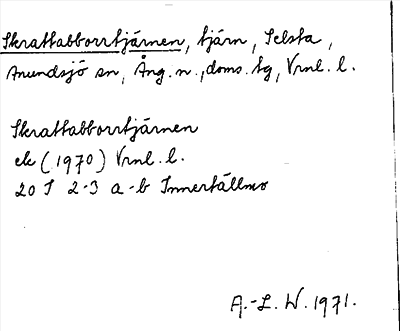 Skrattabborrtjärnen, tjärn, Selsta,
Anundsjö sn, Ång. n., doms. tg, Vrnl. l.
Skrattabborrtjärnen
ek (1970) Vrnl. l.
20 I 2-3 a-b Innertällmo
A.-L. W. 1971.